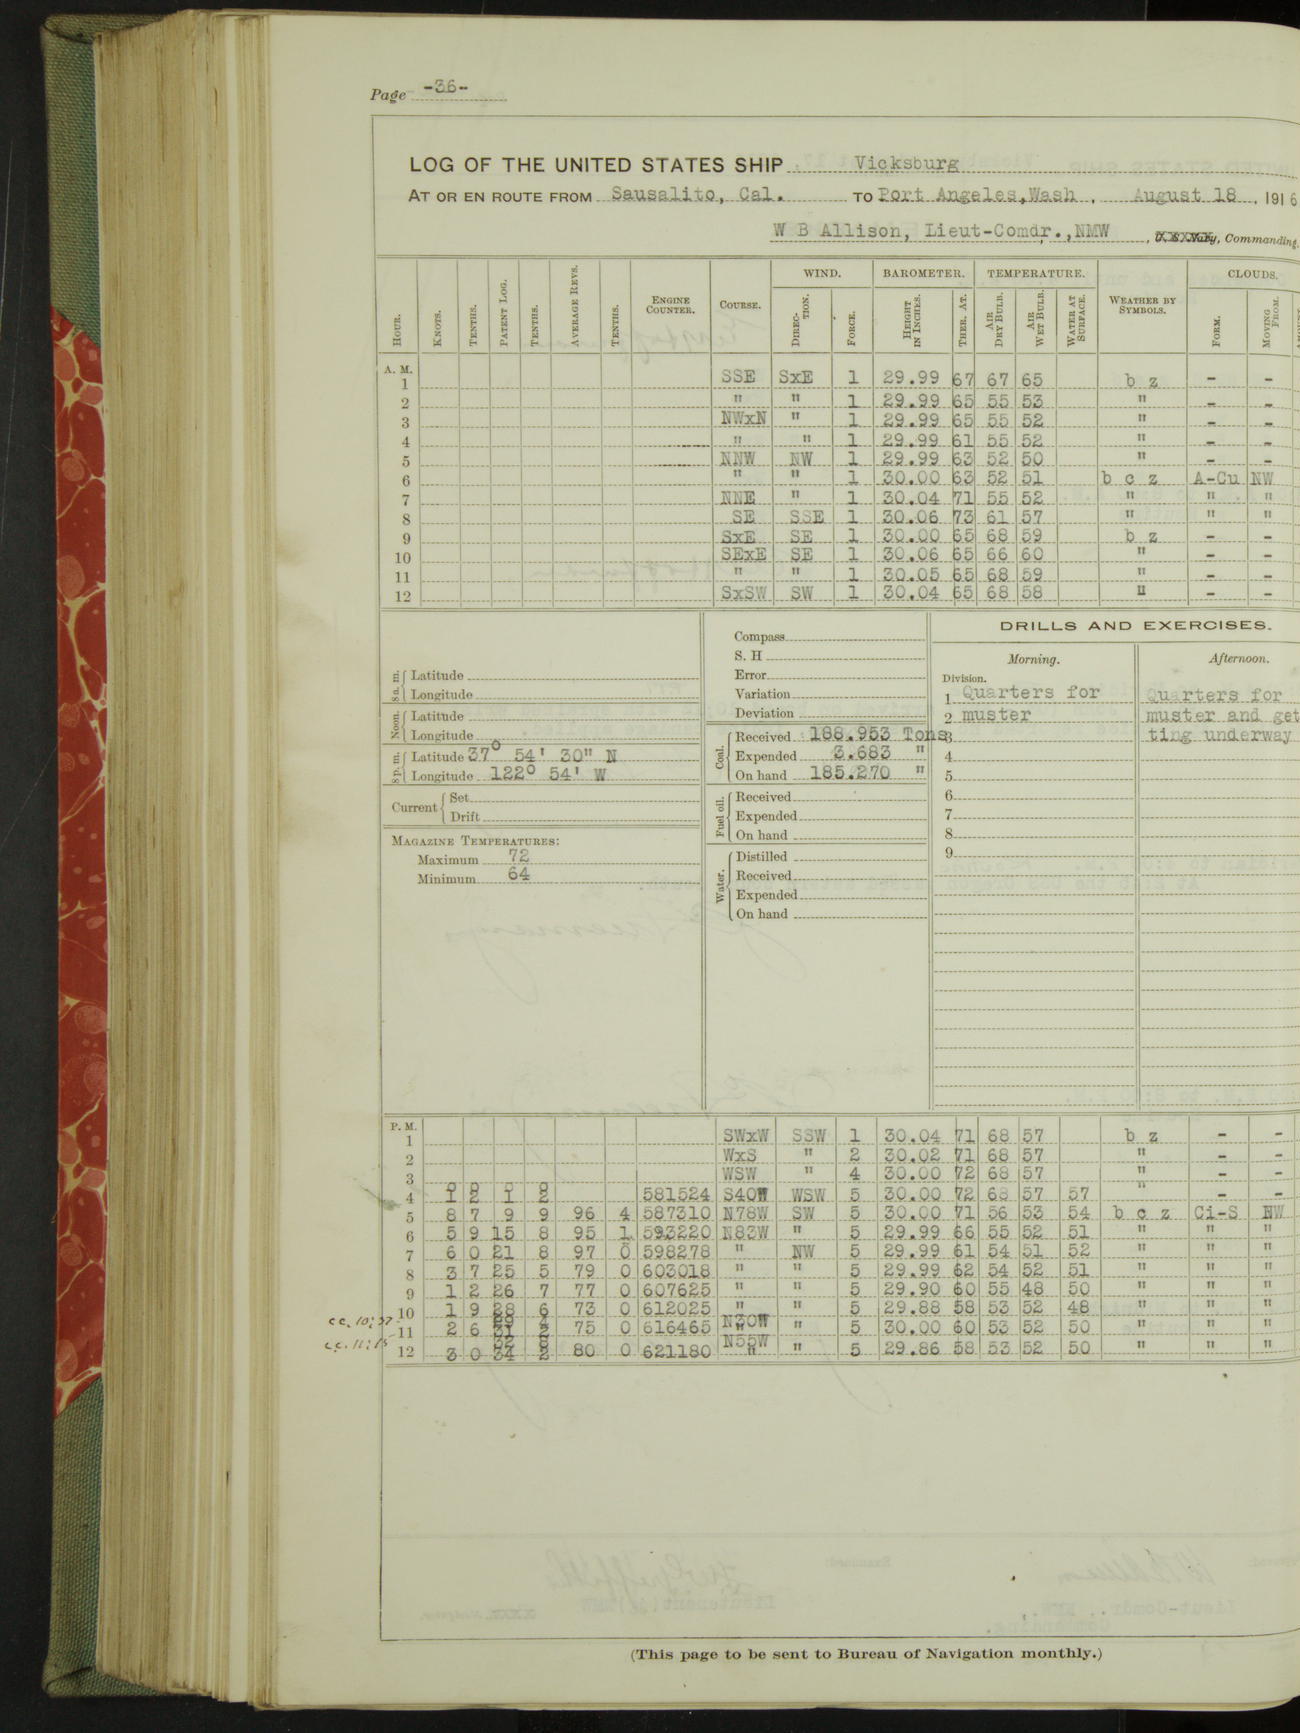 Page -36-
LOG OF THE UNITED STATES SHIP Vicksburg
AT OR EN ROUTE FROM Sausalito, Cal. TO Port Angeles,Wash , August 18 , 1916
W B Allison, Lieut-Comdr.,NMW , U. S. Navy, Commanding.
WIND. BAROMETER. TEMPERATURE. CLOUDS.
HOUR. KNOTS. TENTHS. PATENT LOG. TENTHS. AVERAGE REVS. TENTHS. ENGINE COUNTER. COURSE. DIRECTION. FORCE. HEIGHT IN INCHES. THER. AT. AIR DRY BULB. AIR WET BULB. WATER AT SURFACE. WEATHER BY SYMBOLS. FORM. MOVING FROM.
A. M.
1 SSE SxE 1 29.99 67 67 65 b z - -
2 " " 1 29.99 65 55 53 " - -
3 NWxN " 1 29.99 65 55 52 " - -
4 " " 1 29.99 61 55 52 " - -
5 NNW NW 1 29.99 63 52 50 " - -
6 " " 1 30.00 63 52 51 b c z A-Cu NW
7 NNE " 1 30.04 71 55 52 " " "
8 SE SSE 1 30.06 73 61 57 " " "
9 SxE SE 1 30.00 65 68 59 b z - -
10 SExE SE 1 30.06 65 66 60 " - -
11 " " 1 30.05 65 68 59 " - -
12 SxSW SW 1 30.04 65 68 58 " - -
8 a. m. Latitude
Longitude
Noon. Latitude
Longitude
8 p. m. Latitude 37° 54' 30" N
Longitude 122° 54' W
Current Set
Drift
MAGAZINE TEMPERATURES:
Maximum 72
Minimum 64
Compass
S. H
Error
Variation
Deviation
Coal. Received 188.953 Tons
Expended 3.683 "
On hand 185.270 "
Fuel oil. Received
Expended
On hand
Water. Distilled
Received
Expended
On hand
DRILLS AND EXERCISES.
Morning. Afternoon.
Division.
1 Quarters for Quarters for
2 muster muster and get
3 ting underway
4
5
6
7
8
9
P. M.
1 SWxW SSW 1 30.04 71 68 57 b z - -
2 WxS " 2 30.02 71 68 57 " - -
3 WSW " 4 30.00 72 68 57 " - -
0 0 0 0
4 1 2 1 2 581524 S40W WSW 5 30.00 72 68 57 57 " - -
5 8 7 9 9 96 4 587310 N78W SW 5 30.00 71 56 53 54 b c z Ci-S NW
6 5 9 15 8 95 1 593220 N83W " 5 29.99 66 55 52 51 " " "
7 6 0 21 8 97 0 598278 " NW 5 29.99 61 54 51 52 " " "
8 3 7 25 5 79 0 603018 " " 5 29.99 62 54 52 51 " " "
9 1 2 26 7 77 0 607625 " " 5 29.90 60 55 48 50 " " "
10 1 9 28 6 73 0 612025 " " 5 29.88 58 53 52 48 " " "
c c. 10:37 29 4 N30W
11 2 6 31 2 75 0 616465 " " 5 30.00 60 53 52 50 " " "
c c. 11:15 32 8 N55W
12 3 0 34 2 80 0 621180 " " 5 29.86 58 53 52 50 " " "
(This page to be sent to Bureau of Navigation monthly.)